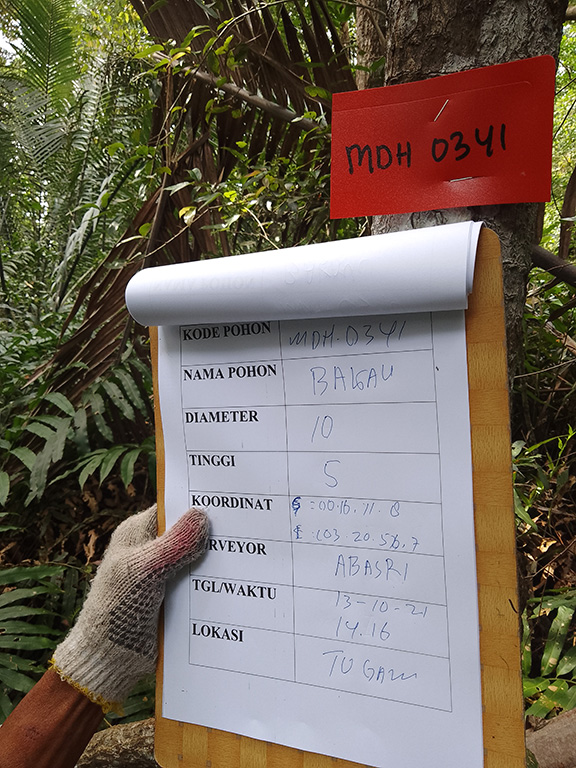 MDH 0341
KODE POHON MDH.0341
NAMA POHON BAKAU
DIAMETER 10
TINGGI 5
KOORDINAT S :00.16.11.8
E :103.20.56.7
RVEYOR ABASRI
TGL/WAKTU 13-10-21
14.16
LOKASI